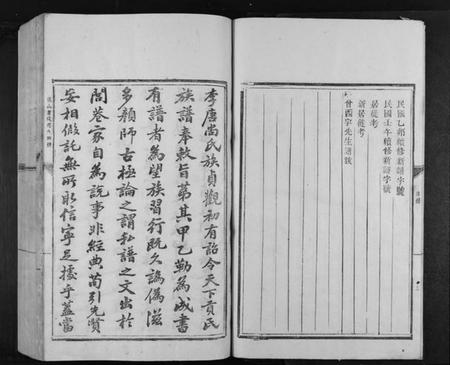 民國乙卯續修新譜字號
民國壬午續修新譜字號
居徙考
新居徙考
曾酉宇先生語錄
目錄
李唐尚氏族貞觀初有詔令天下貢氏
族譜奉敕旨第其甲乙勒為成書
有譜者為望族習行既久譌偽滋
多顏師古極論之謂私譜之文出於
閭巷家自為說事非經典苟引先賢
妄相假託無所取信寧足據乎蓋當